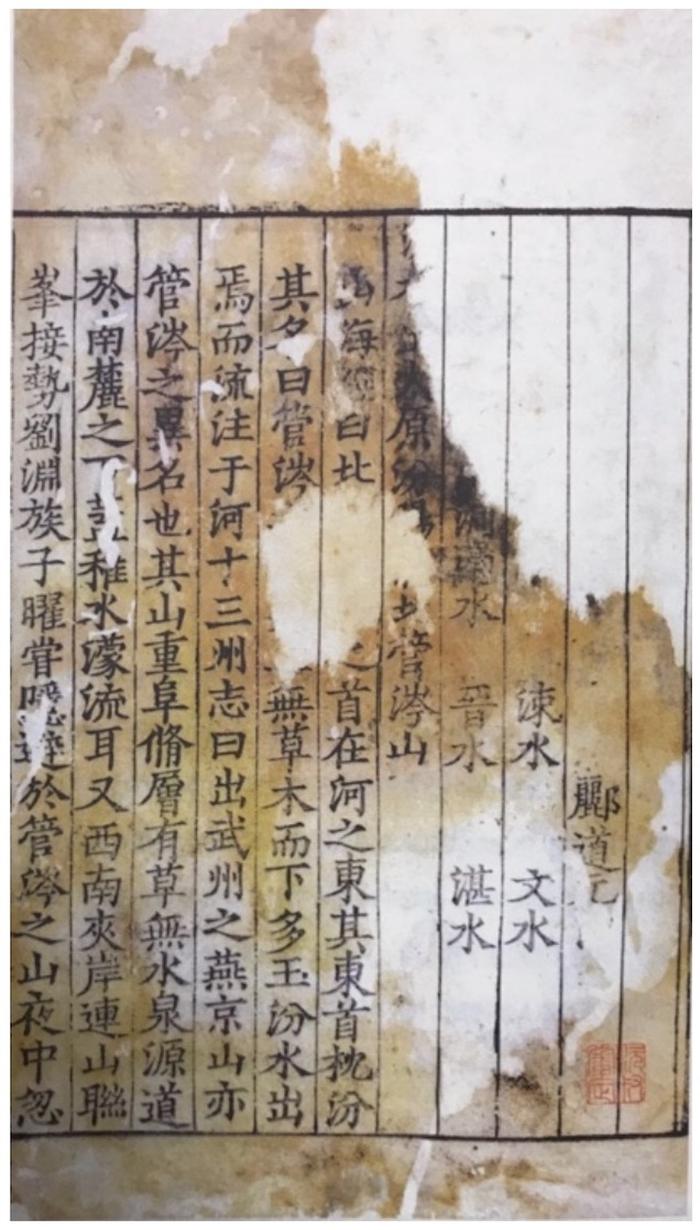 酈道元
涑水 文水
水 晉水 湛水
原汾 管涔山
海經曰北 首在河之東其東首枕汾
其名曰管涔 無草木而下多玉汾水出
焉而流注于河十三州志曰出武州之燕京山亦
管涔之異名也其山重阜脩層有草無水泉源道
於南麓之下 稚水濛流耳又西南夾岸連山聯
峯接勢劉淵族子曜嘗隱避於管涔之山夜中忽